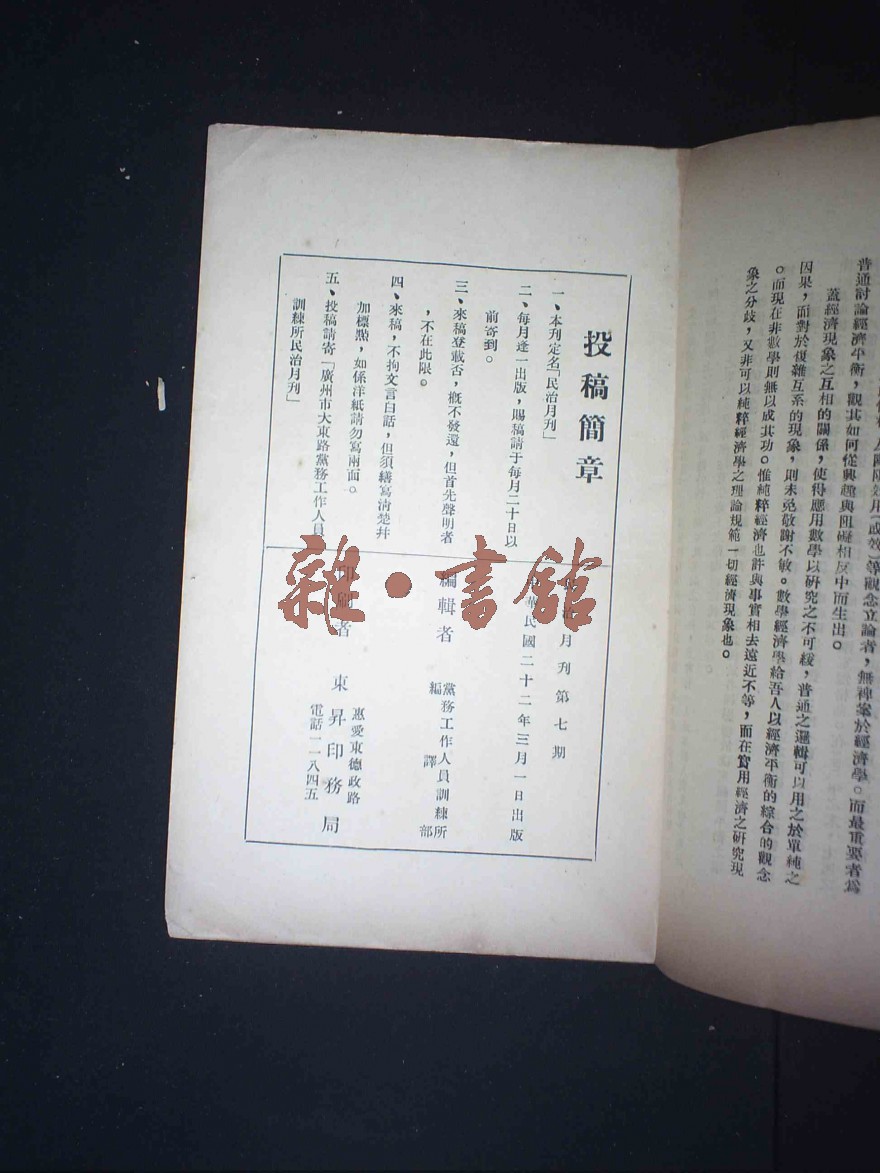 普通討論經濟平衡，觀其如何從興趣與阻礙相反中而生出。
蓋經濟現象之互相的關係，使得應用數學以研究之不可緩，普通之邏輯可以用之於單純之
因果，而對於複雜互系的現象，則未免敬謝不敏。數學經濟學給吾人以經濟平衡的綜合的觀念
。而現在非數學則無以成其功。惟純粹經濟也許與事實相去遠近不等，而在實用經濟之研究現
象之分歧，又非可以純粹經濟學之理論規範一切經濟現象也。
投稿簡章
一、本刊定名「民治月刊」
二、每月逢一出版，賜稿請于每月二十日以
前寄到。
三、來稿登載否，概不發還，但首先聲明者
，不在此限。
四、來稿，不拘文言白話，但須繕寫清楚幷
加標點，如係洋紙請勿寫兩面。
五、投稿請寄「廣州市大東路黨務工作人員
訓練所民治月刊」
民治月刊第七期
中華民國二十二年三月一日出版
編輯者
黨務工作人員訓練所
編譯部
印刷者
東昇印務局
惠愛東德政路
電話一一八四五
雜·書館